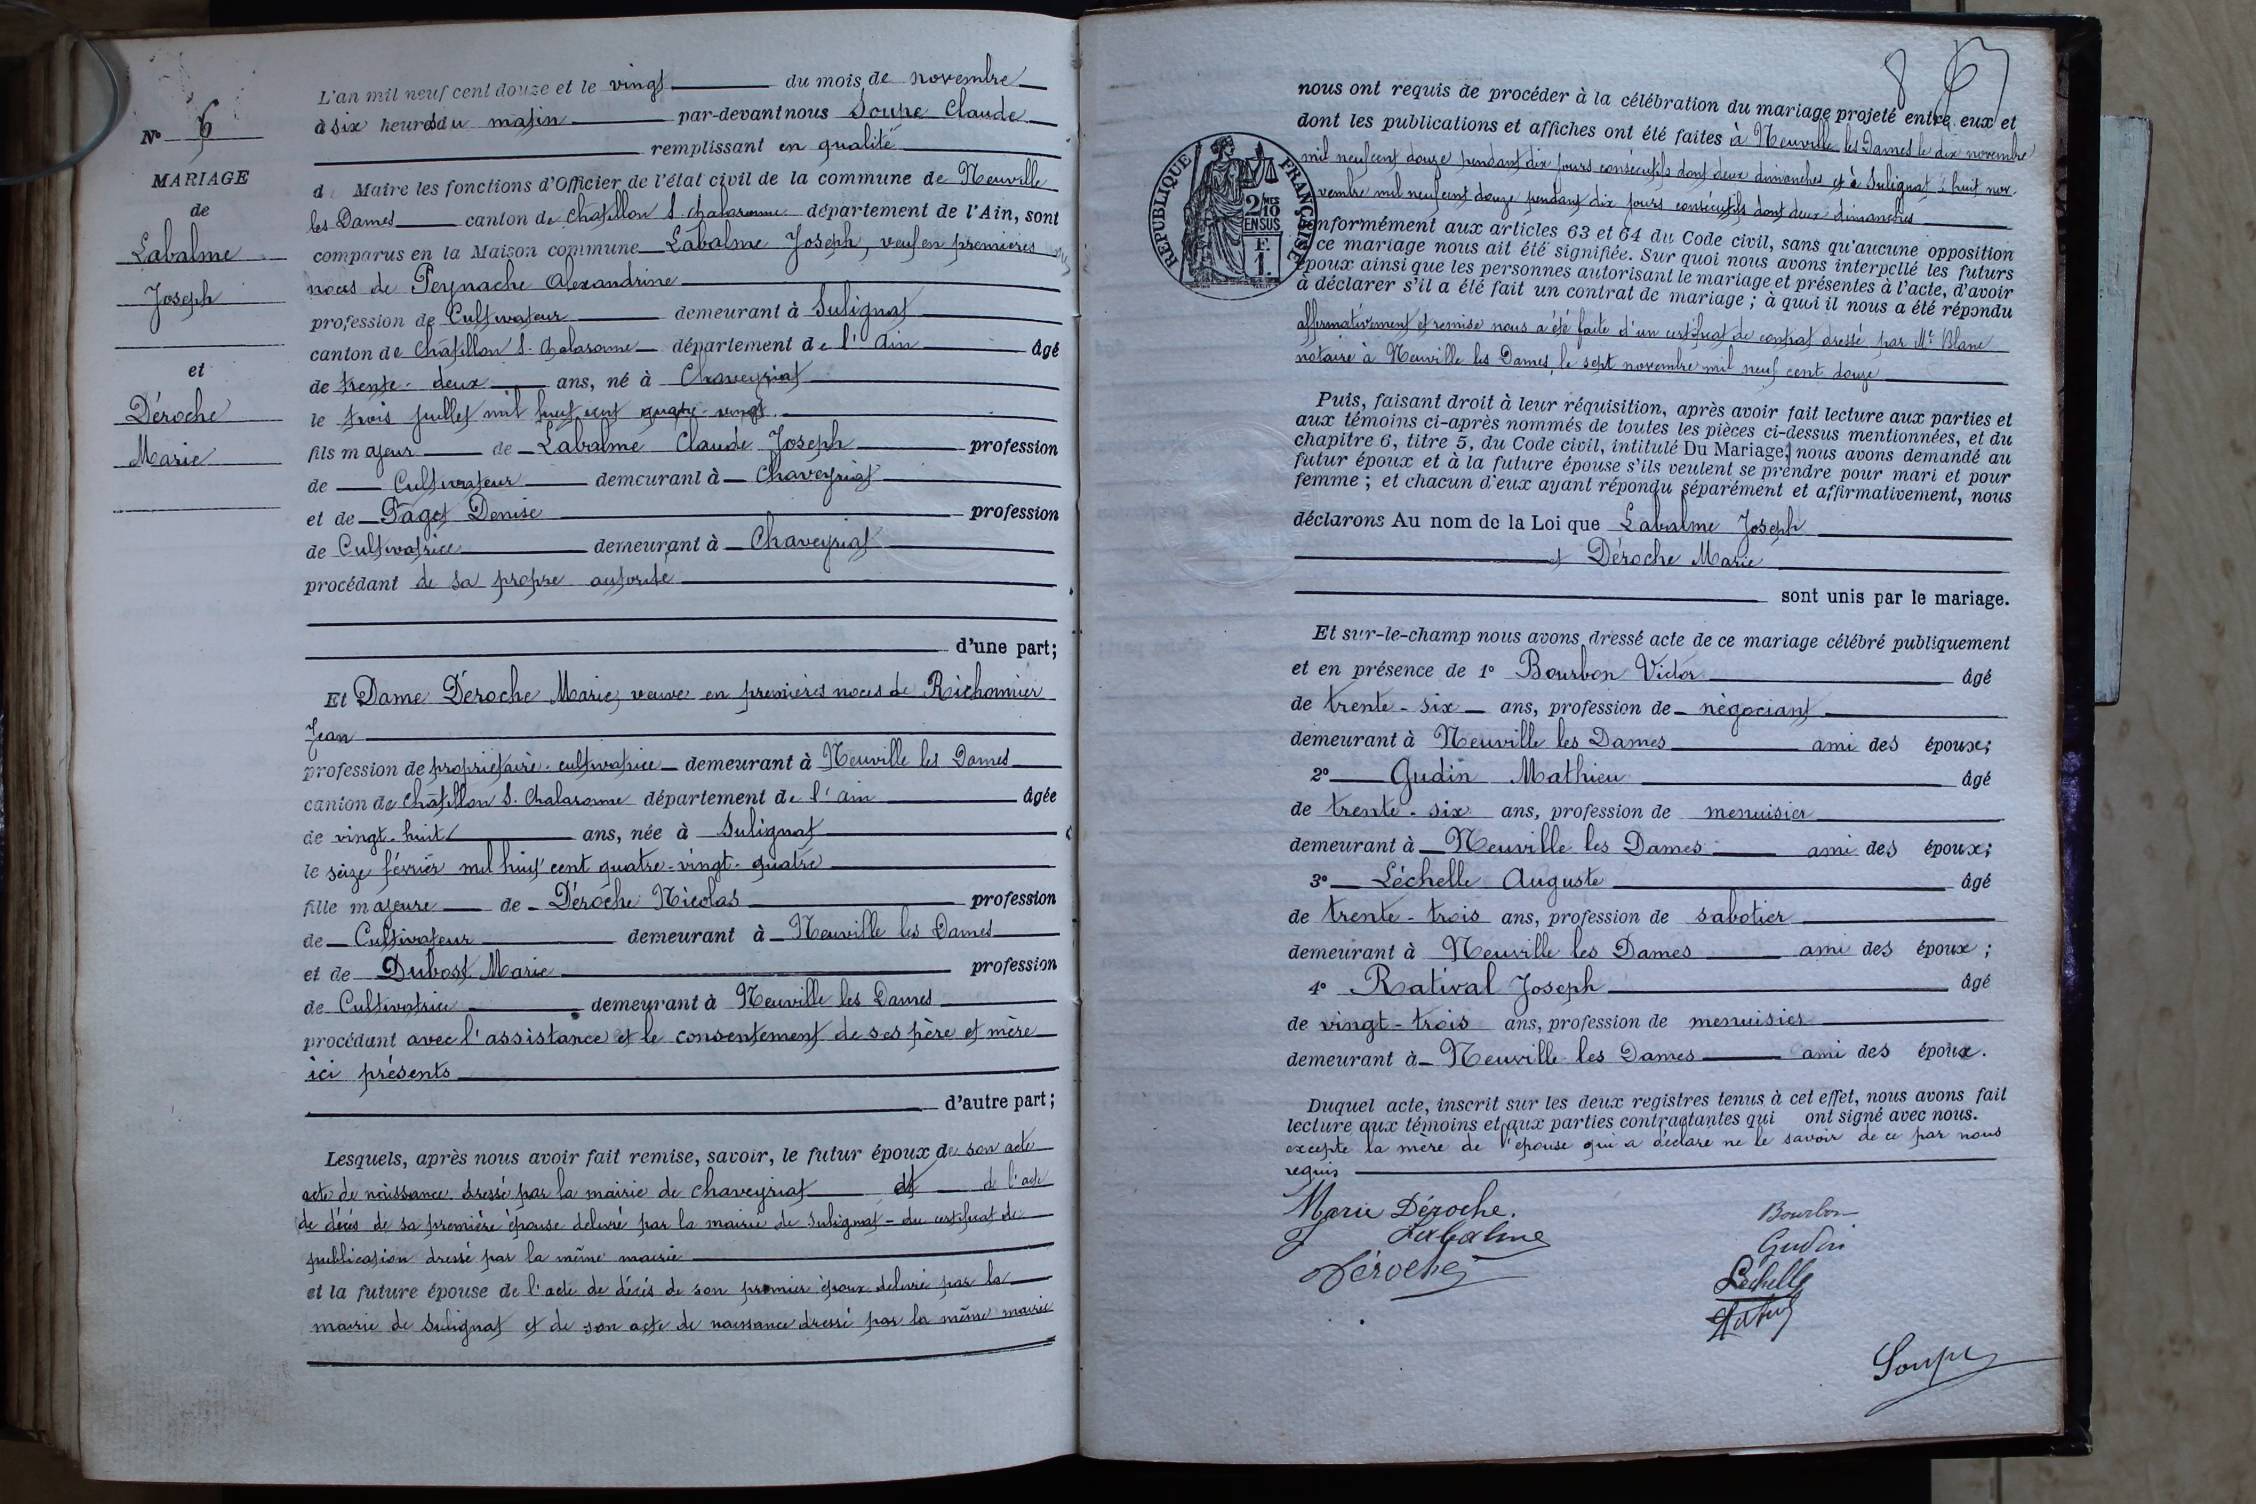 N° 6
MARIAGE
de
Labalme
Joseph
et
Déroche
Marie
L'an mil neuf cent douze et le vingt du mois de novembre
à six heures du matin par-devant nous Soupe Claude
remplissant en qualité
d Maire les fonctions d'Officier de l'état civil de la commune de Neuville
les Dames canton de Châtillon S. Chalaronne département de l'Ain, sont
comparus en la Maison commune Labalme Joseph, veuf en premières
noces de Peynache Alexandrine
profession de Cultivateur demeurant à Sulignat
canton de Châtillon S. Chalaronne département de l'Ain âgé
de trente-deux ans, né à Chaveyriat
le trois juillet mil huit cent quatre-vingt
fils majeur de Labalme Claude Joseph profession
de Cultivateur demeurant à Chaveyriat
et de Paget Denise profession
de Cultivatrice demeurant à Chaveyriat
procédant de sa propre autorité
d'une part;
Et Dame Déroche Marie, veuve en premières noces de Richonnier
Jean
profession de propriétaire-cultivatrice demeurant à Neuville les Dames
canton de Châtillon S. Chalaronne département de l'ain âgée
de vingt-huit ans, née à Sulignat
le seize février mil huit cent quatre-vingt-quatre
fille majeure de Déroche Nicolas profession
de Cultivateur demeurant à Neuville les Dames
et de Dubost Marie profession
de Cultivatrice demeurant à Neuville les Dames
procédant avec l'assistance et le consentement de ses père et mère
ici présents
d'autre part;
Lesquels, après nous avoir fait remise, savoir, le futur époux de son acte
acte de naissance dressé par la mairie de Chaveyriat et de l'acte
de décès de sa première épouse delivré par la mairie de Sulignat - du certificat de
publication dressé par la même mairie
et la future épouse de l'acte de décès de son premier époux delivré par la
mairie de Sulignat et de son acte de naissance dressé par la même mairie
8
nous ont requis de procéder à la célébration du mariage projeté entre eux et
dont les publications et affiches ont été faites à Neuville les Dames le dix novembre
mil neuf cent douze pendant dix jours consécutifs dont deux dimanches et à Sulignat huit nov.
vembre mil neuf cent douze pendant dix jours consécutifs dont deux dimanches
RÉPUBLIQUE FRANÇAISE
2/10 MES
EN SUS
F.
1.
conformément aux articles 63 et 64 du Code civil, sans qu'aucune opposition
ce mariage nous ait été signifiée. Sur quoi nous avons interpellé les futurs
époux ainsi que les personnes autorisant le mariage et présentes à l'acte, d'avoir
à déclarer s'il a été fait un contrat de mariage; à quoi il nous a été répondu
affirmativement et remise nous a été faite d'un certificat de contrat dressé par Me Blanc
notaire à Neuville les Dames, le sept novembre mil neuf cent douze
Puis, faisant droit à leur réquisition, après avoir fait lecture aux parties et
aux témoins ci-après nommés de toutes les pièces ci-dessus mentionnées, et du
chapitre 6, titre 5, du Code civil, intitulé Du Mariage, nous avons demandé au
futur époux et à la future épouse s'ils veulent se prendre pour mari et pour
femme; et chacun d'eux ayant répondu séparément et affirmativement, nous
déclarons Au nom de la Loi que Labalme Joseph
et Déroche Marie
sont unis par le mariage.
Et sur-le-champ nous avons dressé acte de ce mariage célébré publiquement
et en présence de 1° Bourbon Victor âgé
de trente-six ans, profession de négociant
demeurant à Neuville les Dames ami des époux;
2° Gudin Mathieu âgé
de trente-six ans, profession de menuisier
demeurant à Neuville les Dames ami des époux;
3° Léchelle Auguste âgé
de trente-trois ans, profession de sabotier
demeurant à Neuville les Dames ami des époux;
4° Rativat Joseph âgé
de vingt-trois ans, profession de menuisier
demeurant à Neuville les Dames ami des époux.
Duquel acte, inscrit sur les deux registres tenus à cet effet, nous avons fait
lecture aux témoins et aux parties contractantes qui ont signé avec nous.
excepté la mère de l'épouse qui a déclaré ne le savoir de ce par nous
requis
Marie Déroche.
Labalme
Déroche
Bourbon
Gudin
Léchelle
Soupe